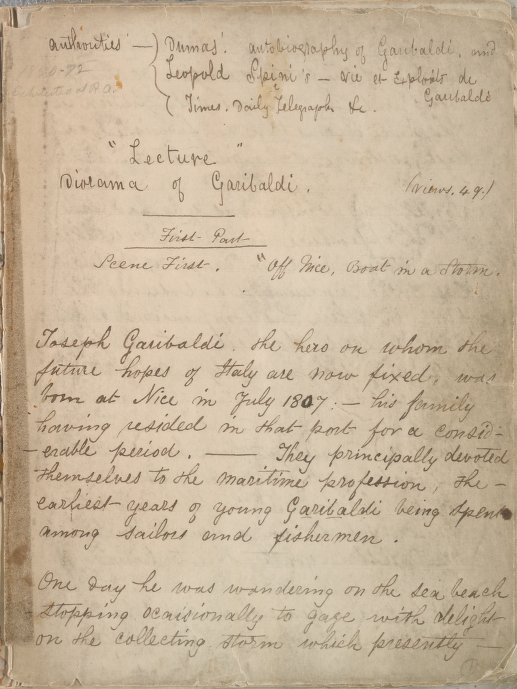 Authorities — Dumas' autobiography of Garibaldi, and
Leopold Spini's — Vie et Exploits de
Garibaldi
Times, Daily Telegraph &c.
"Lecture"
Diorama of Garibaldi.
(views. 49.)
First Part
Scene First. "Off Nice, Boat in a Storm.
Joseph Garibaldi, the hero on whom the
future hopes of Italy are now fixed, was
born at Nice in July 1807: — his family
having resided in that port for a consid-
-erable period. — They principally devoted
themselves to the maritime profession, the —
earliest years of young Garibaldi being spent
among sailors and fishermen.
One day he was wandering on the sea beach
stopping ocaisionally to gaze with delight
on the collecting storm which presently —